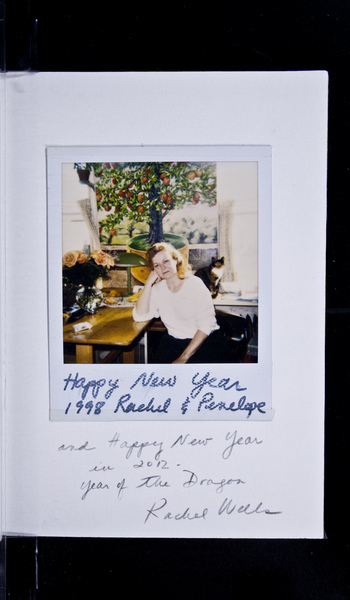 Happy New Year
1998 Rachel & Penelope
and Happy New Year
in 2012.
year of the Dragon
Rachel Wells